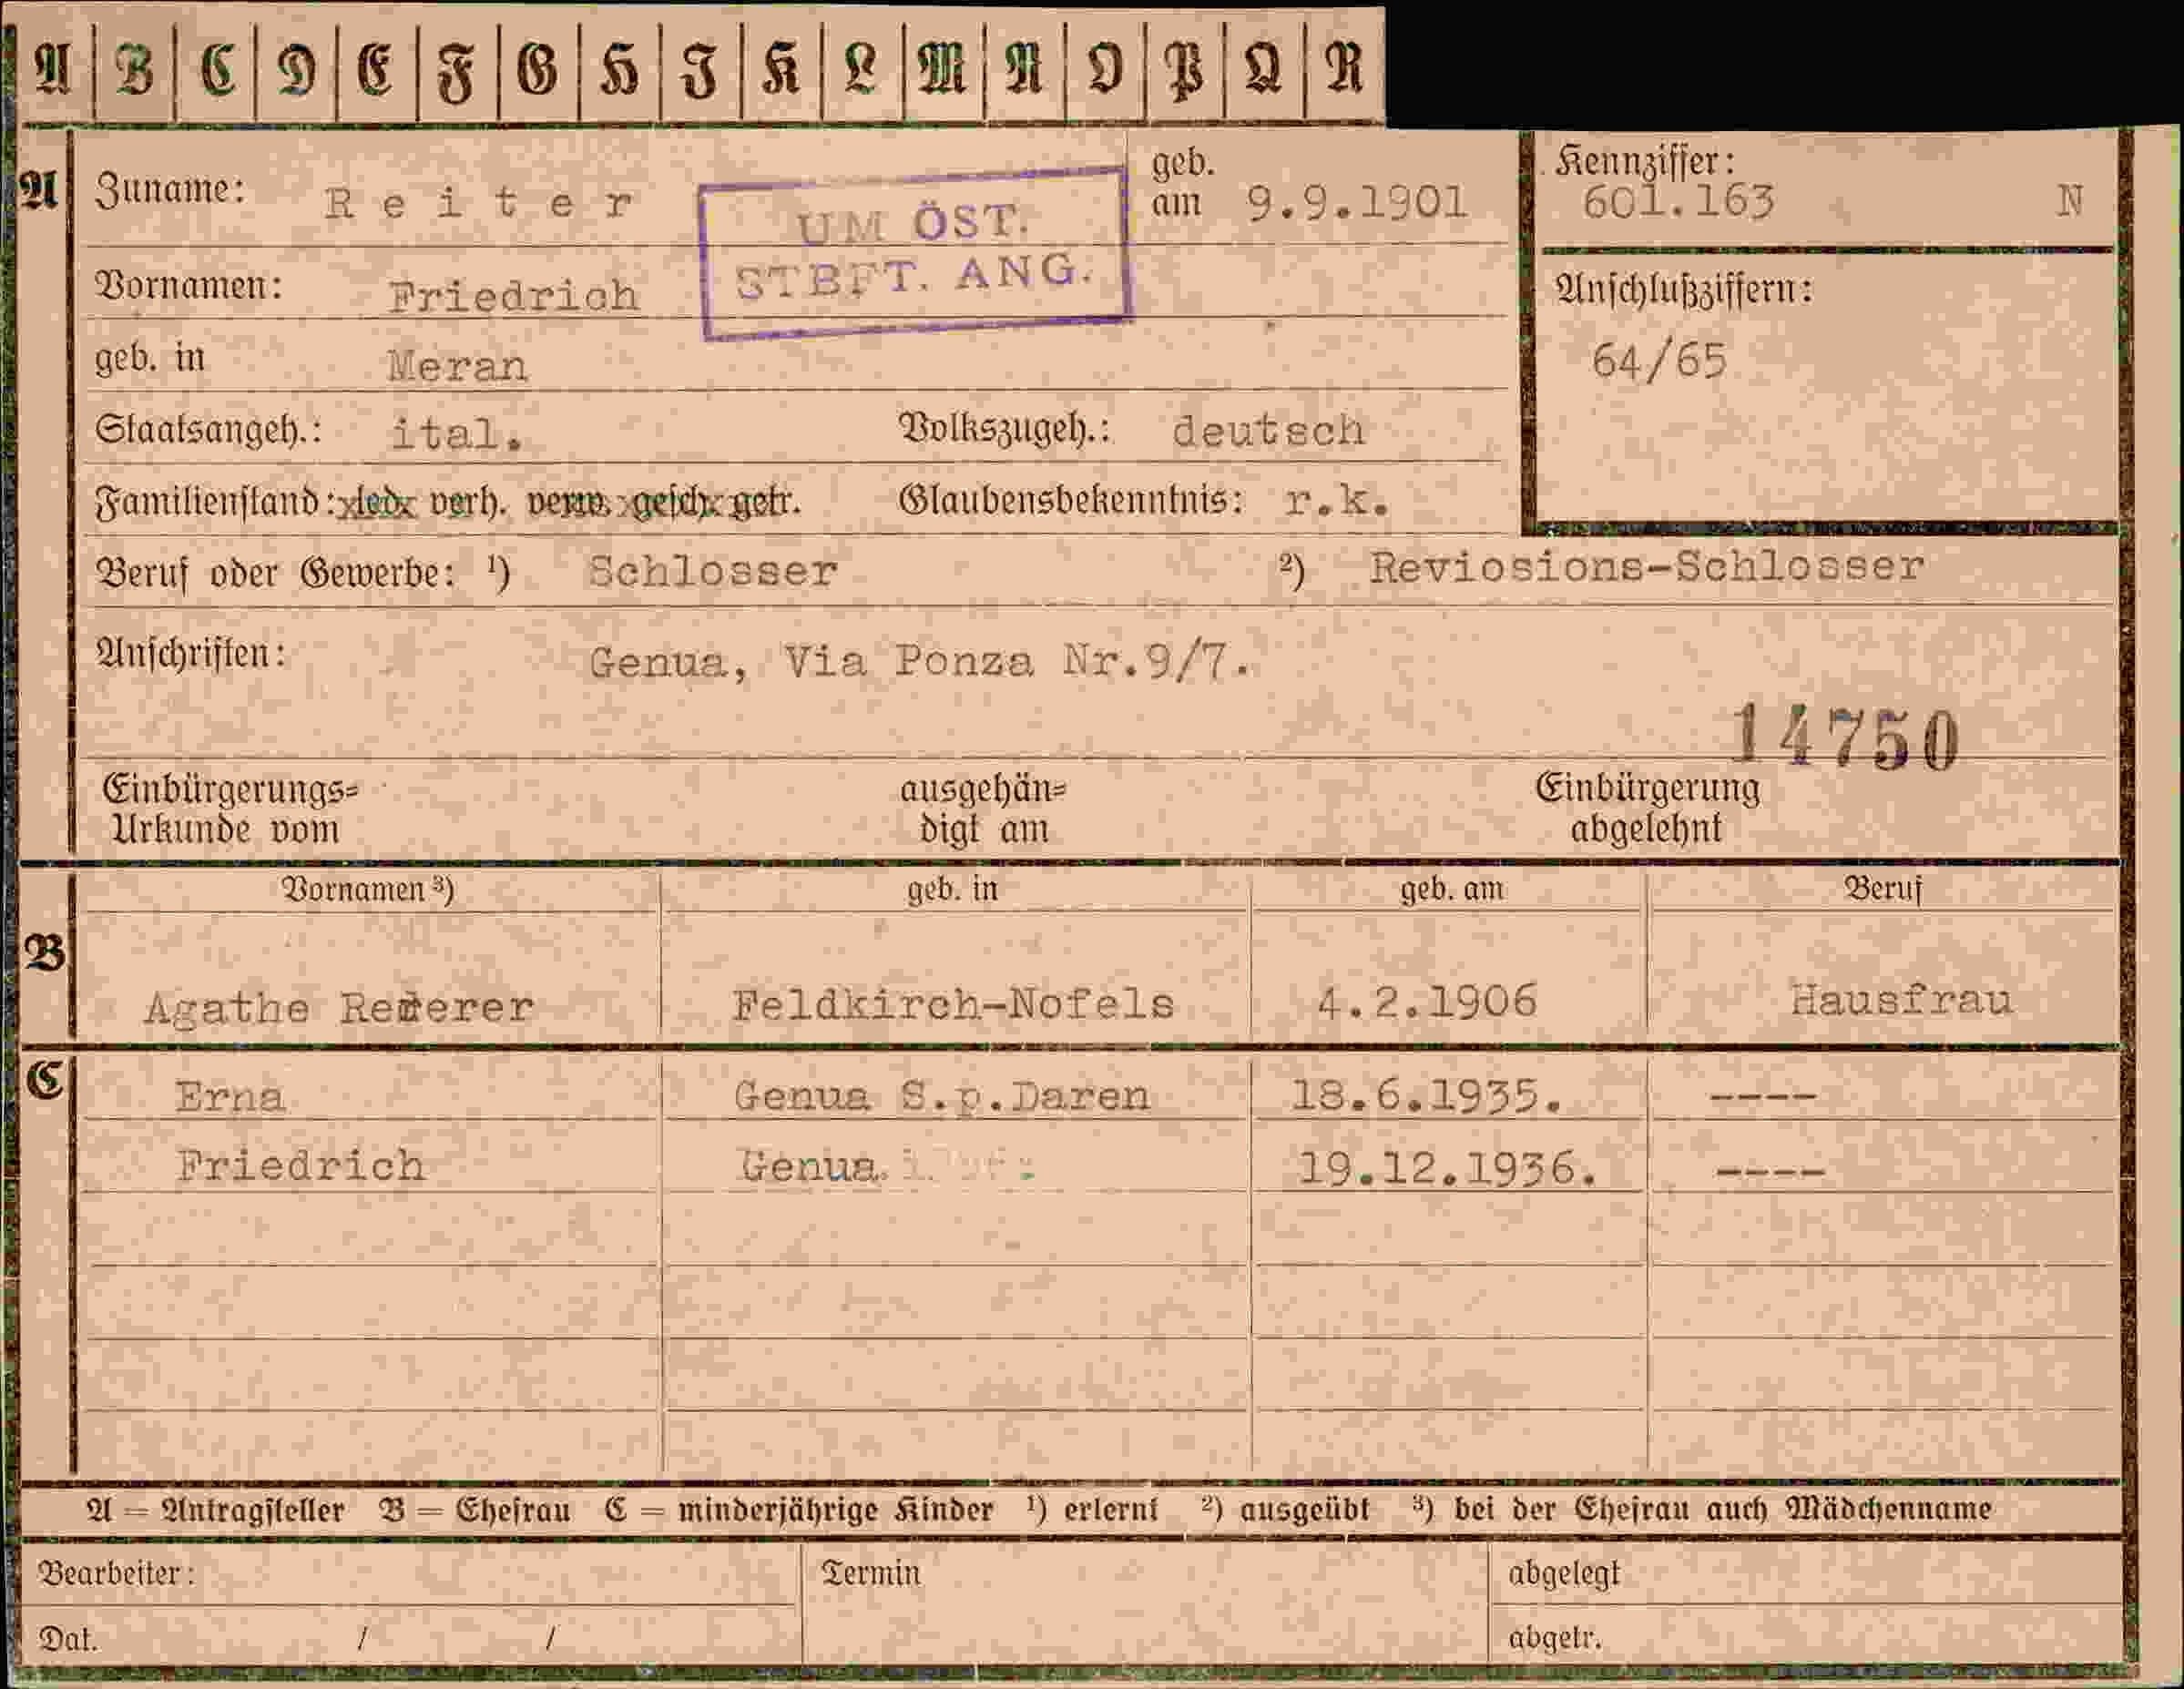 A B C D E F G H I K L M N O P Q R
A Zuname: Reiter geb. am 9.9.1901
UM ÖST.
STBFT. ANG.
Kennziffer:
601.163 N
Vornamen: Friedrich
Anschlußziffern:
64/65
geb. in Meran
Staatsangeh.: ital. Volkszugeh.: deutsch
Familienstand: led. verh. verw. gesch. getr. Glaubensbekenntnis: r.k.
Beruf oder Gewerbe: ¹) Schlosser ²) Reviosions-Schlosser
Anschriften: Genua, Via Ponza Nr.9/7.
14750
Einbürgerungs= Urkunde vom ausgehän= digt am Einbürgerung abgelehnt
Vornamen ³) geb. in geb. am Beruf
B
Agathe Feldkirch-Nofels 4.2.1906 Hausfrau
C Erna Genua S.p.Daren 18.6.1935. ----
Friedrich Genua 19.12.1936. ----
A = Antragsteller B = Ehefrau C = minderjährige Kinder ¹) erlernt ²) ausgeübt ³) bei der Ehefrau auch Mädchenname
Bearbeiter: Termin abgelegt
Dat. / / abgetr.